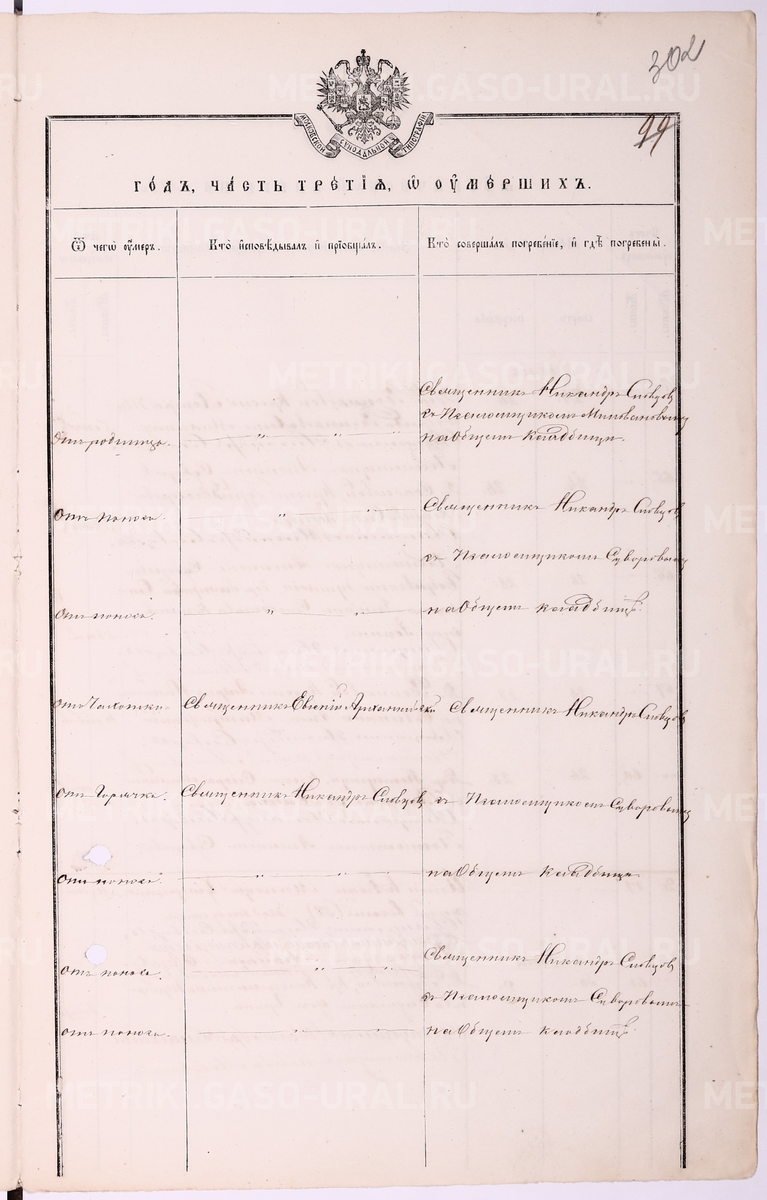 302
99
МОСКОВСКОЙ СѴНОДАЛЬНОЙ ТИПОГРАФІИ
ГО́ДЪ, ЧА́СТЬ ТРЕ́ТІѦ, Ѡ҆ ОУ҆МЕ́РШИХЪ.
Ѿ чегѡ̀ оу҆́меръ.
Кто̀ и҆сповѣ́дывалъ и҆ прїѡбща́лъ.
Кто̀ соверша́лъ погребе́нїе, и҆ гдѣ̀ погребены̀.
Священникъ Никандръ Словцовъ
съ Псаломщикомъ
отъ родимца. " " на Общемъ Кладбищѣ.
отъ поноса. " " Священникъ Никандръ Словцовъ
съ Псаломщикомъ Суворовымъ
отъ поноса. " " на Общемъ кладбищѣ.
отъ Чахотки. Священникъ Евгеній Священникъ Никандръ Словцовъ
отъ Горячки. Священникъ Никандръ Словцовъ съ Псаломщикомъ Суворовымъ
отъ поноса. " " на Общемъ кладбищѣ
Священникъ Никандръ Словцовъ
отъ поноса. " "
съ Псаломщикомъ Суворовымъ
отъ поноса. " " на Общемъ кладбищѣ.
METRIKI.GASO-URAL.RU